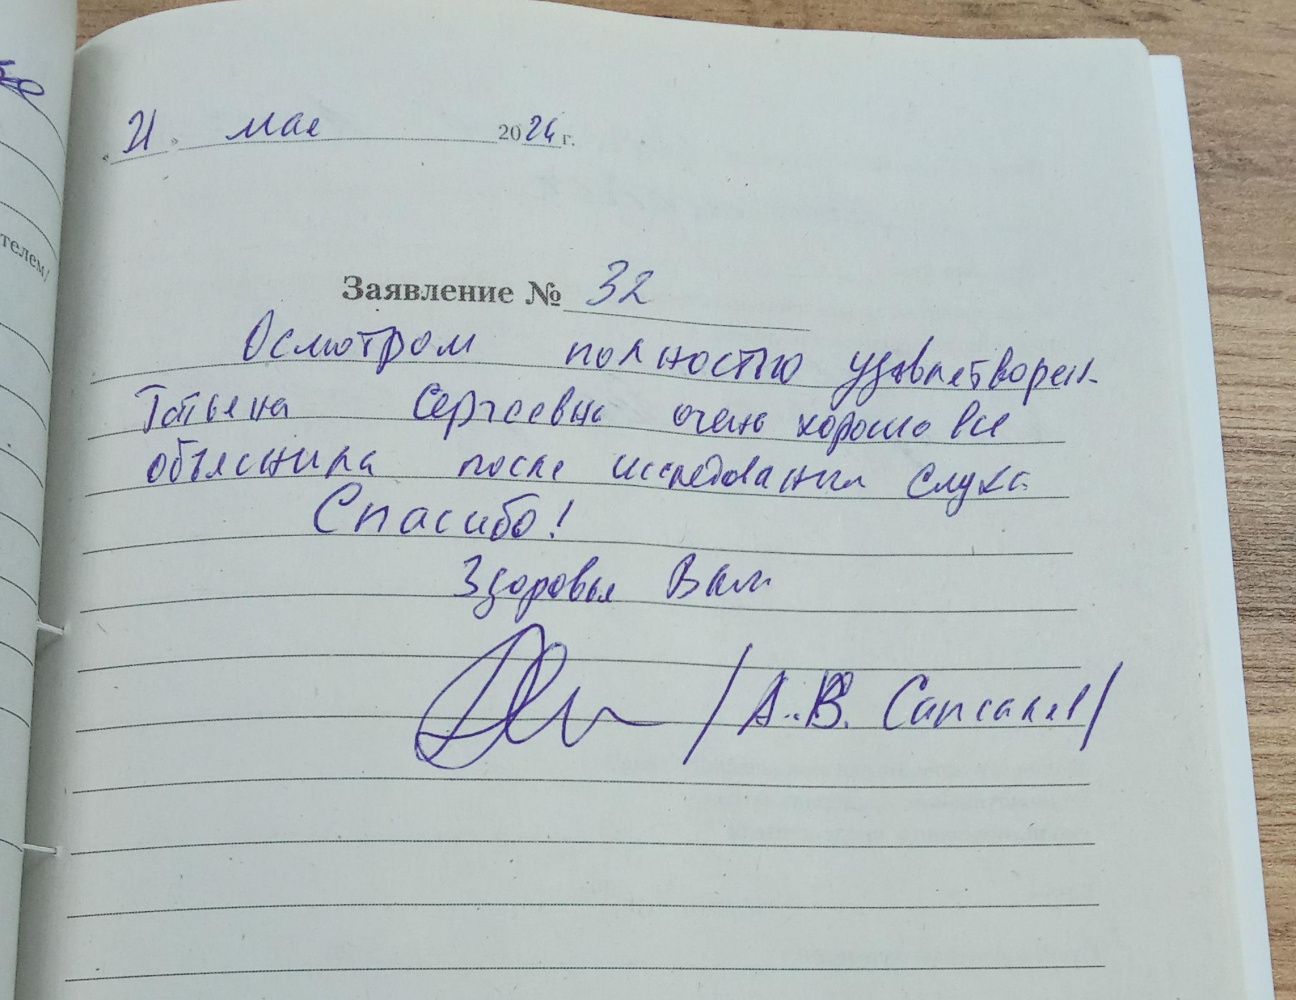 « 21 » мая 2024 г.
телем/
Заявление № 32
Осмотром полностью удовлетворен.
Татьяна Сергеевна очень хорошо все
объяснила после исследования слуха
Спасибо!
Здоровья Вам
/ А.В. /